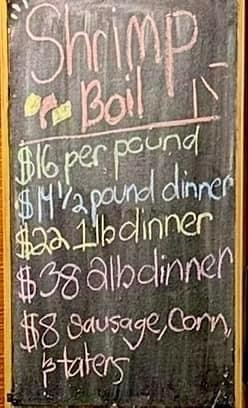 Shrimp
Boil
$16 per pound
$14 1/2 pound dinner
$22 1lb dinner
$38 2lb dinner
$8 Sausage, Corn,
ptaters